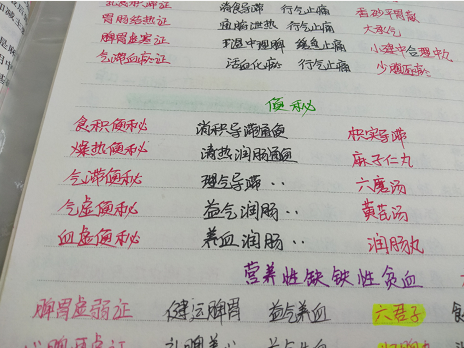 消食导滞 行气止痛 香砂平胃散
胃肠结热证 通腑泄热 行气止痛 大承气
脾胃虚寒证 温中理脾 缓急止痛 小建中合理中丸
气滞血瘀证 活血化瘀 行气止痛 少腹逐瘀
便秘
食积便秘 消积导滞通便 枳实导滞
燥热便秘 清热润肠通便 麻子仁丸
气滞便秘 理气导滞·· 六磨汤
气虚便秘 益气润肠·· 黄芪汤
血虚便秘 养血润肠·· 润肠丸
营养性缺铁性贫血
脾胃虚弱证 健运脾胃 益气养血 六君子